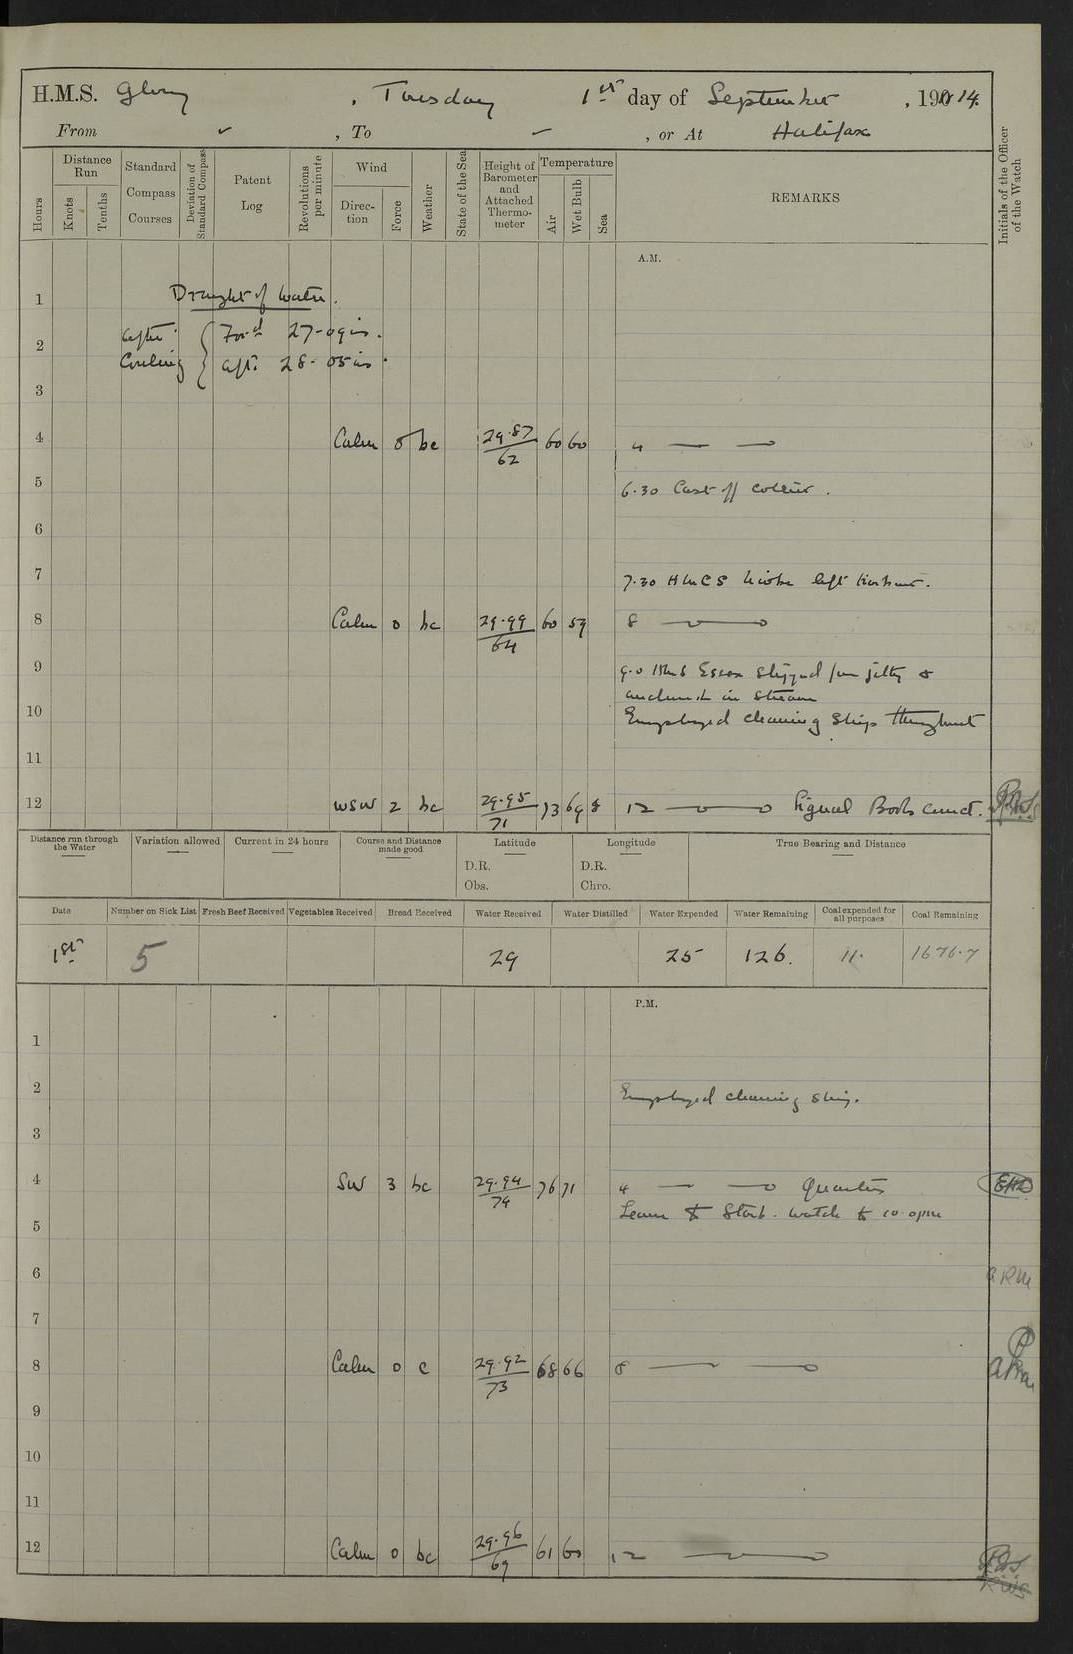 H.M.S. Glory , Tuesday 1st day of September , 1914.
From ✓ , To — , or At Halifax
Hours
Distance Run
Knots
Tenths
Standard Compass Courses
Deviation of Standard Compass
Patent Log
Revolutions per minute
Wind
Direction
Force
Weather
State of the Sea
Height of Barometer and Attached Thermometer
Temperature
Air
Wet Bulb
Sea
REMARKS
Initials of the Officer of the Watch
A.M.
1 Draught of Water.
2 After Coaling { For'd 27-09 ins.
Aft. 28-05 ins.
3
4 Calm 0 bc 29.87/62 60 60 4 — —
5 6.30 Cast off collier.
6
7 7.30 HMCS Niobe left harbour.
8 Calm 0 bc 29.99/64 60 59 8 —
9 9.0 HMS Essex slipped from jetty &
anchored in stream
10 Employed cleaning ship throughout
11
12 WSW 2 bc 29.95/71 73 69 12 — Signal Books corrct.
Distance run through the Water
Variation allowed
Current in 24 hours
Course and Distance made good
Latitude
D.R.
Obs.
Longitude
D.R.
Chro.
True Bearing and Distance
Date Number on Sick List Fresh Beef Received Vegetables Received Bread Received Water Received Water Distilled Water Expended Water Remaining Coal expended for all purposes Coal Remaining
1st 5 29 25 126. 11. 1676.7
P.M.
1
2 Employed cleaning ship.
3
4 SW 3 bc 29.94/74 76 71 4 — — Quarters
Leave to Starb. watch to 10.0 pm
5
6 ARM
7
8 Calm 0 c 29.92/73 68 66 8 — —
9
10
11
12 Calm 0 bc 29.96/69 61 60 12 —